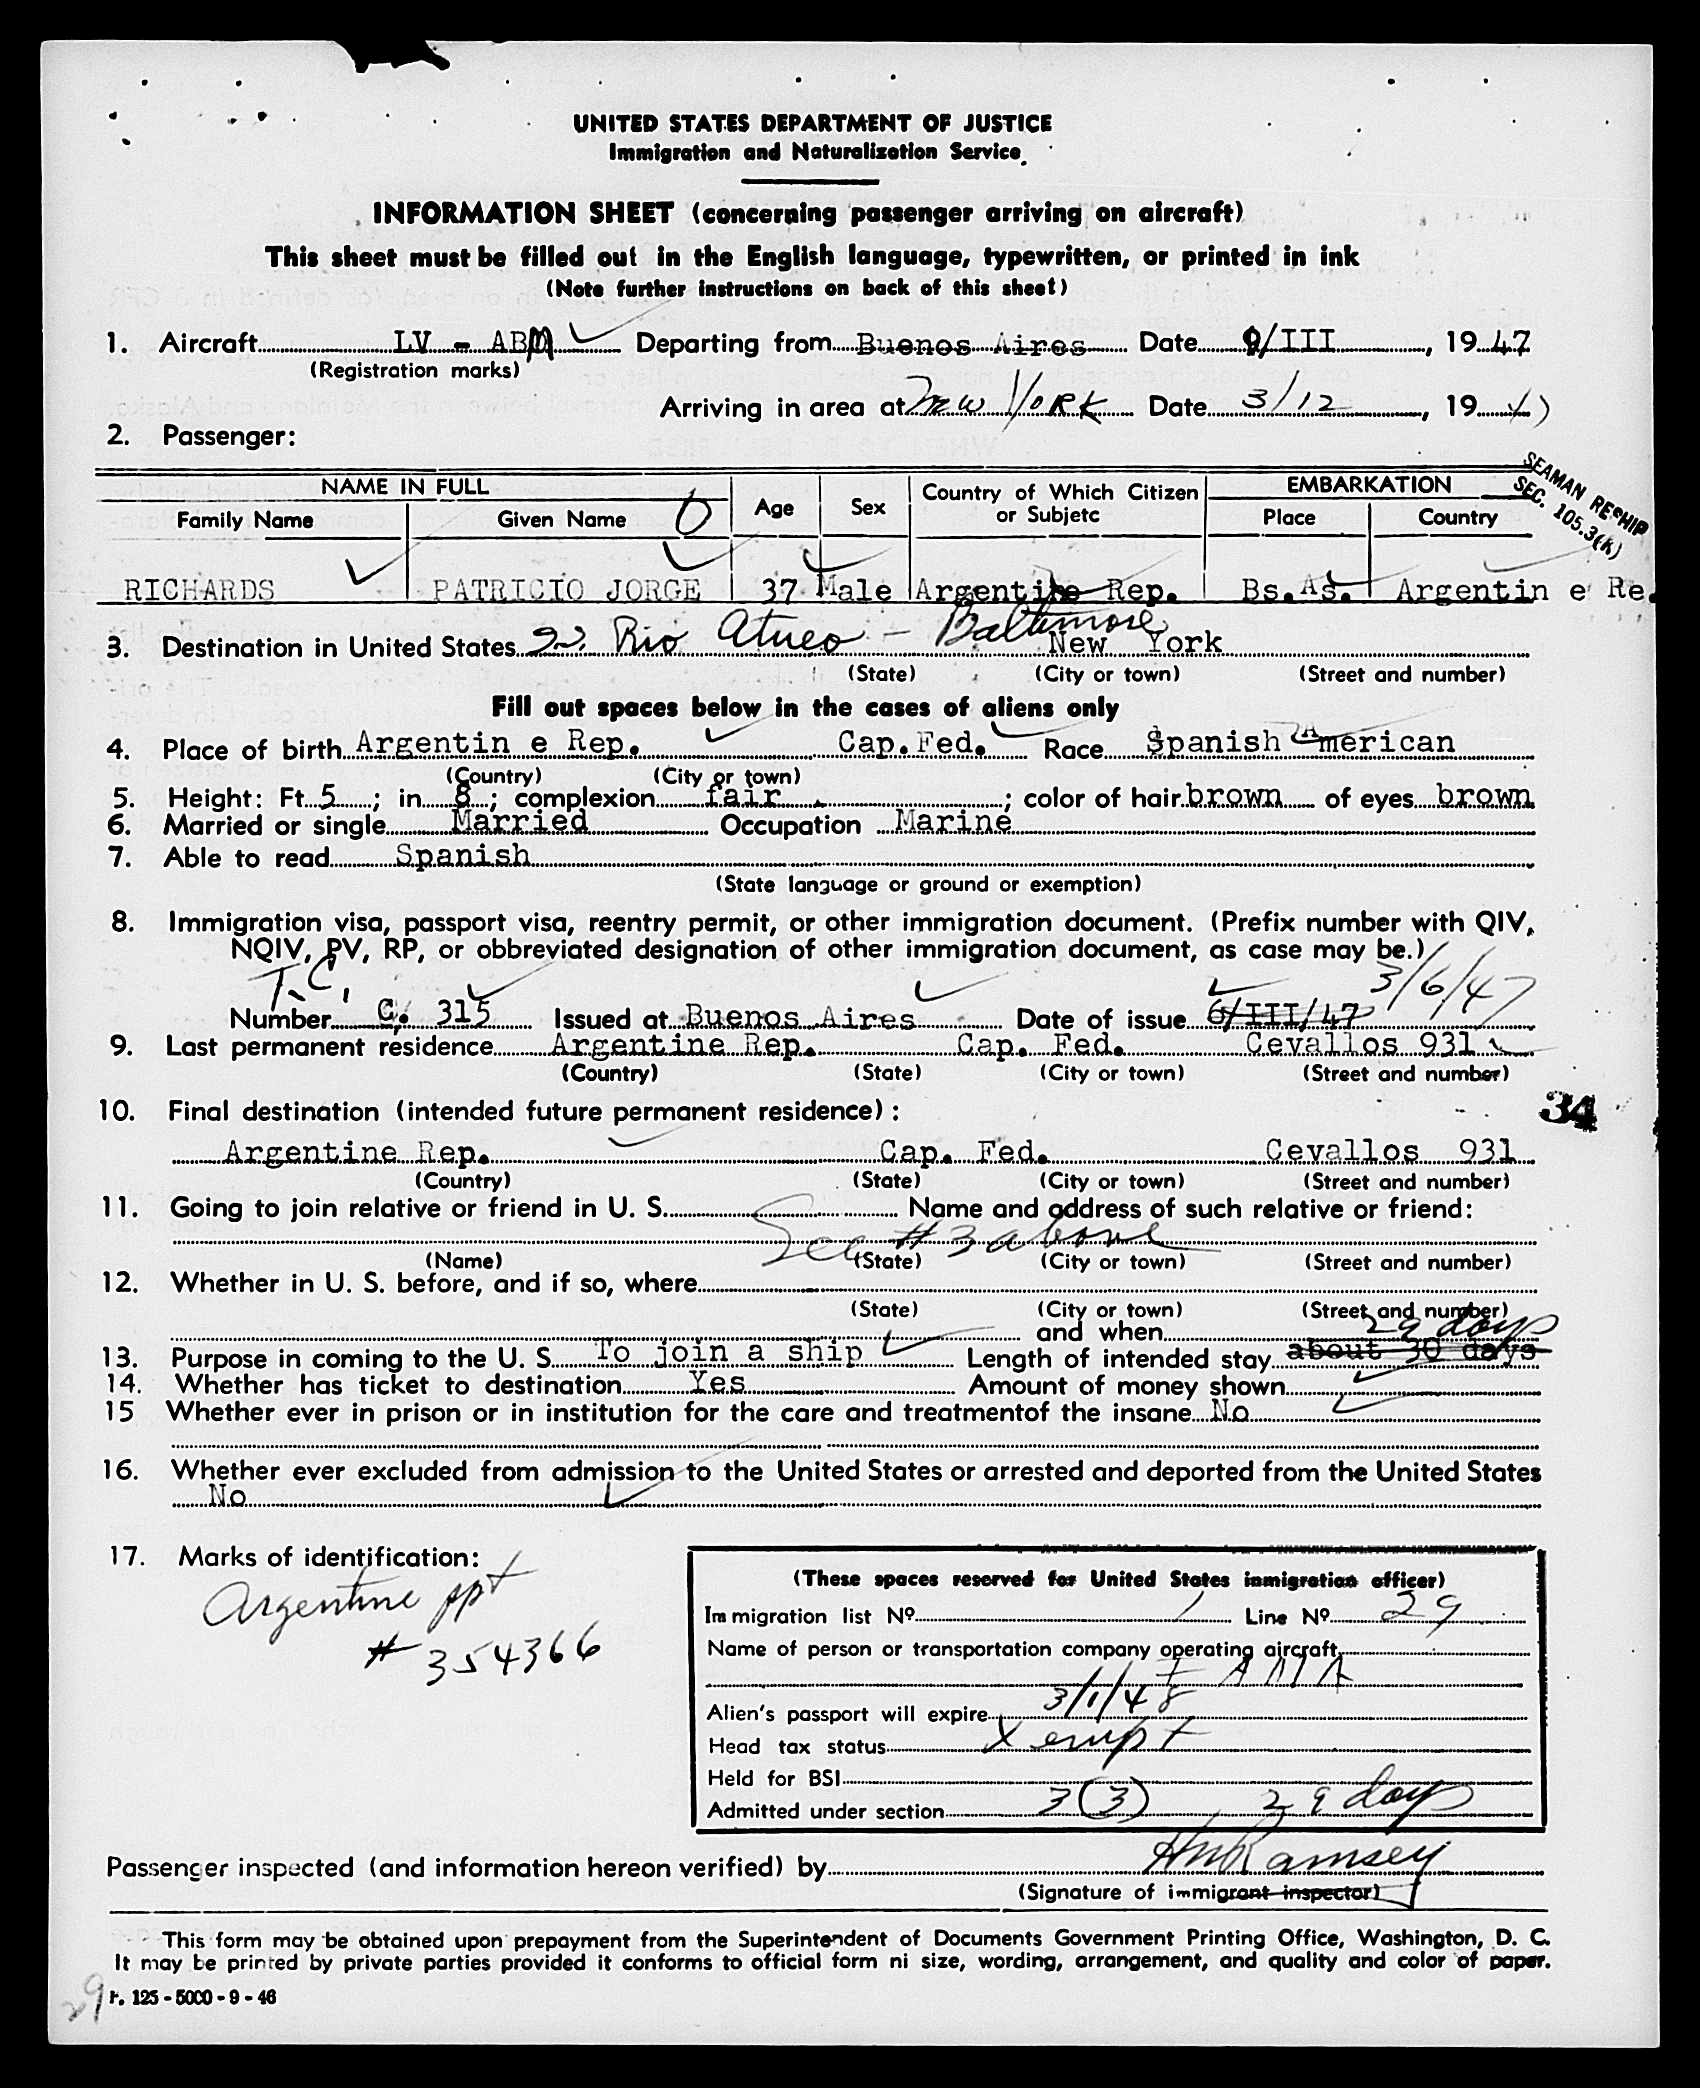 UNITED STATES DEPARTMENT OF JUSTICE
Immigration and Naturalization Service
INFORMATION SHEET (concerning passenger arriving on aircraft)
This sheet must be filled out in the English language, typewritten, or printed in ink
(Note further instructions on back of this sheet)
1. Aircraft LV - ABM Departing from Buenos Aires Date 9/III, 19 47
(Registration marks)
Arriving in area at New York Date 3/12, 19 47
2. Passenger:
SEAMAN RESHIP
SEC. 105.3(K)
NAME IN FULL Age Sex Country of Which Citizen or Subjetc EMBARKATION
Family Name Given Name Place Country
RICHARDS PATRICIO JORGE 37 Male Argentine Rep. Bs.As. Argentin e Re.
3. Destination in United States SS. Rio Atueo - Baltimore New York
(State) (City or town) (Street and number)
Fill out spaces below in the cases of aliens only
4. Place of birth Argentin e Rep. Cap.Fed. Race Spanish American
(Country) (City or town)
5. Height: Ft. 5; in. 8; complexion fair; color of hair brown of eyes brown
6. Married or single Married Occupation Marine
7. Able to read Spanish
(State language or ground or exemption)
8. Immigration visa, passport visa, reentry permit, or other immigration document. (Prefix number with QIV,
NQIV, PV, RP, or obbreviated designation of other immigration document, as case may be.)
T.C. 3/6/47
Number C. 315 Issued at Buenos Aires Date of issue 6/III/47
9. Last permanent residence Argentine Rep. Cap. Fed. Cevallos 931
(Country) (State) (City or town) (Street and number)
34
10. Final destination (intended future permanent residence):
Argentine Rep. Cap. Fed. Cevallos 931
(Country) (State) (City or town) (Street and number)
11. Going to join relative or friend in U. S. Name and address of such relative or friend:
See #3 above
(Name) (State) (City or town) (Street and number)
12. Whether in U. S. before, and if so, where
(State) (City or town) (Street and number)
and when
29 days
13. Purpose in coming to the U. S. To join a ship Length of intended stay about 30 days
14. Whether has ticket to destination Yes Amount of money shown
15 Whether ever in prison or in institution for the care and treatmentof the insane No
16. Whether ever excluded from admission to the United States or arrested and deported from the United States
No
17. Marks of identification:
Argentine ppt
# 354366
(These spaces reserved for United States inmigration officer)
Immigration list Nº 1 Line Nº 29
Name of person or transportation company operating aircraft
F A M A
Alien's passport will expire 3/1/48
Head tax status Xempt
Held for BSI
Admitted under section 3(3) 29 days
Passenger inspected (and information hereon verified) by HM Ramsey
(Signature of immigrant inspector)
This form may be obtained upon prepayment from the Superintendent of Documents Government Printing Office, Washington, D. C.
It may be printed by private parties provided it conforms to official form ni size, wording, arrangement, and quality and color of paper.
29 F. 125 - 5000 - 9 - 46